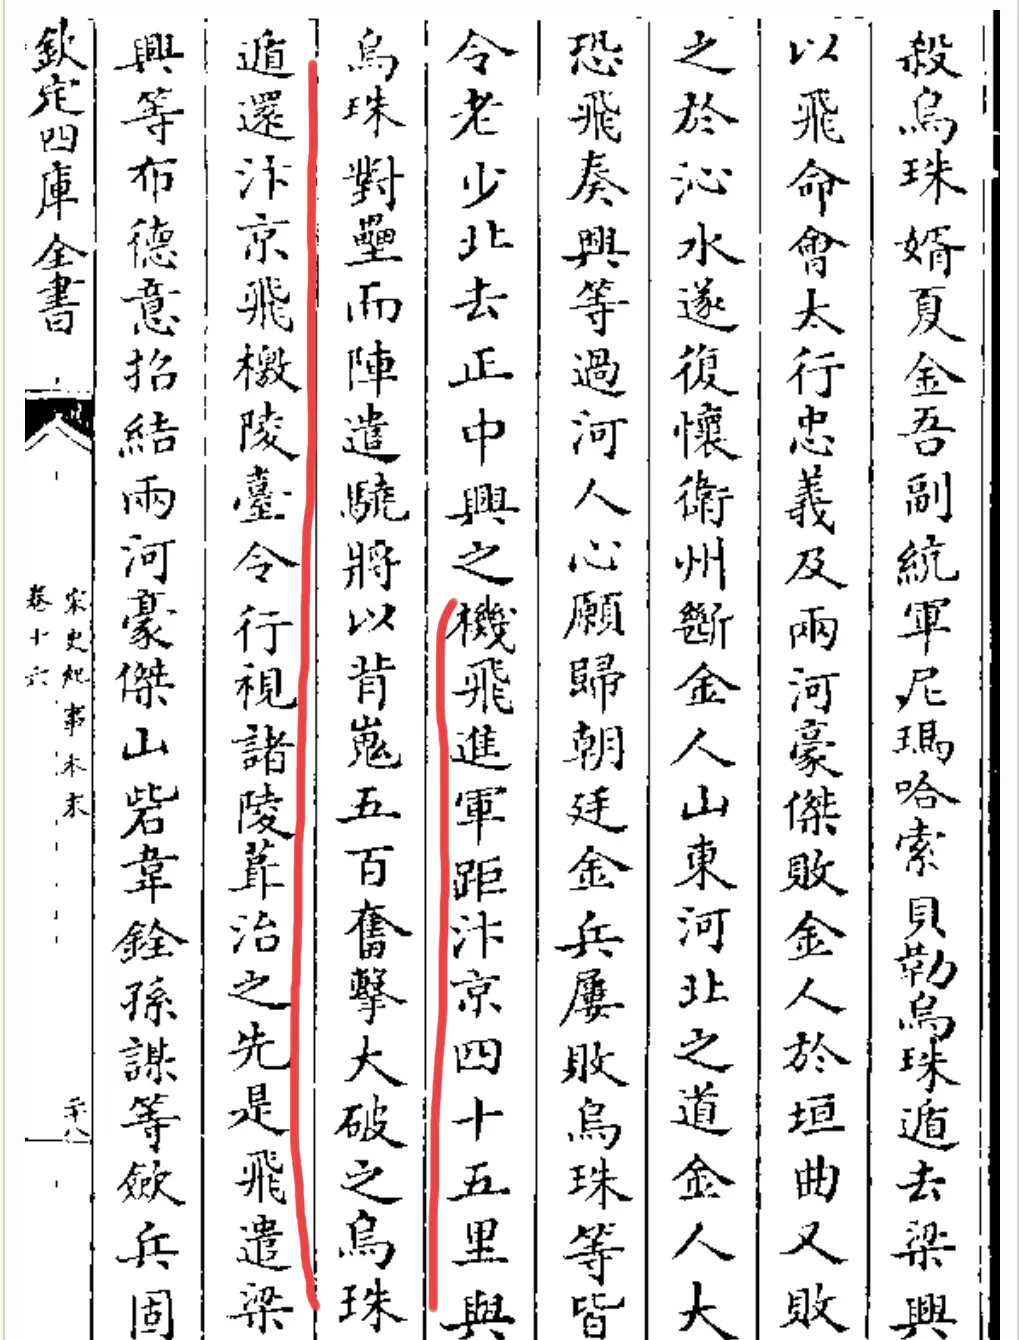 殺烏珠婿夏金吾副統軍尼瑪哈索貝勒烏珠遁去梁興
以飛命會太行忠義及兩河豪傑敗金人於垣曲又敗
之於沁水遂復懷衛州斷金人山東河北之道金人大
恐飛奏興等過河人心願歸朝廷金兵屢敗烏珠等皆
令老少北去正中興之機飛進軍距汴京四十五里與
烏珠對壘而陣遣驍將以背嵬五百奮擊大破之烏珠
遁還汴京飛檄陵臺令行視諸陵葺治之先是飛遣梁
興等布德意招結兩河豪傑山砦韋銓孫謀等斂兵固
欽定四庫全書
宋史紀事本末
卷十六
二十八